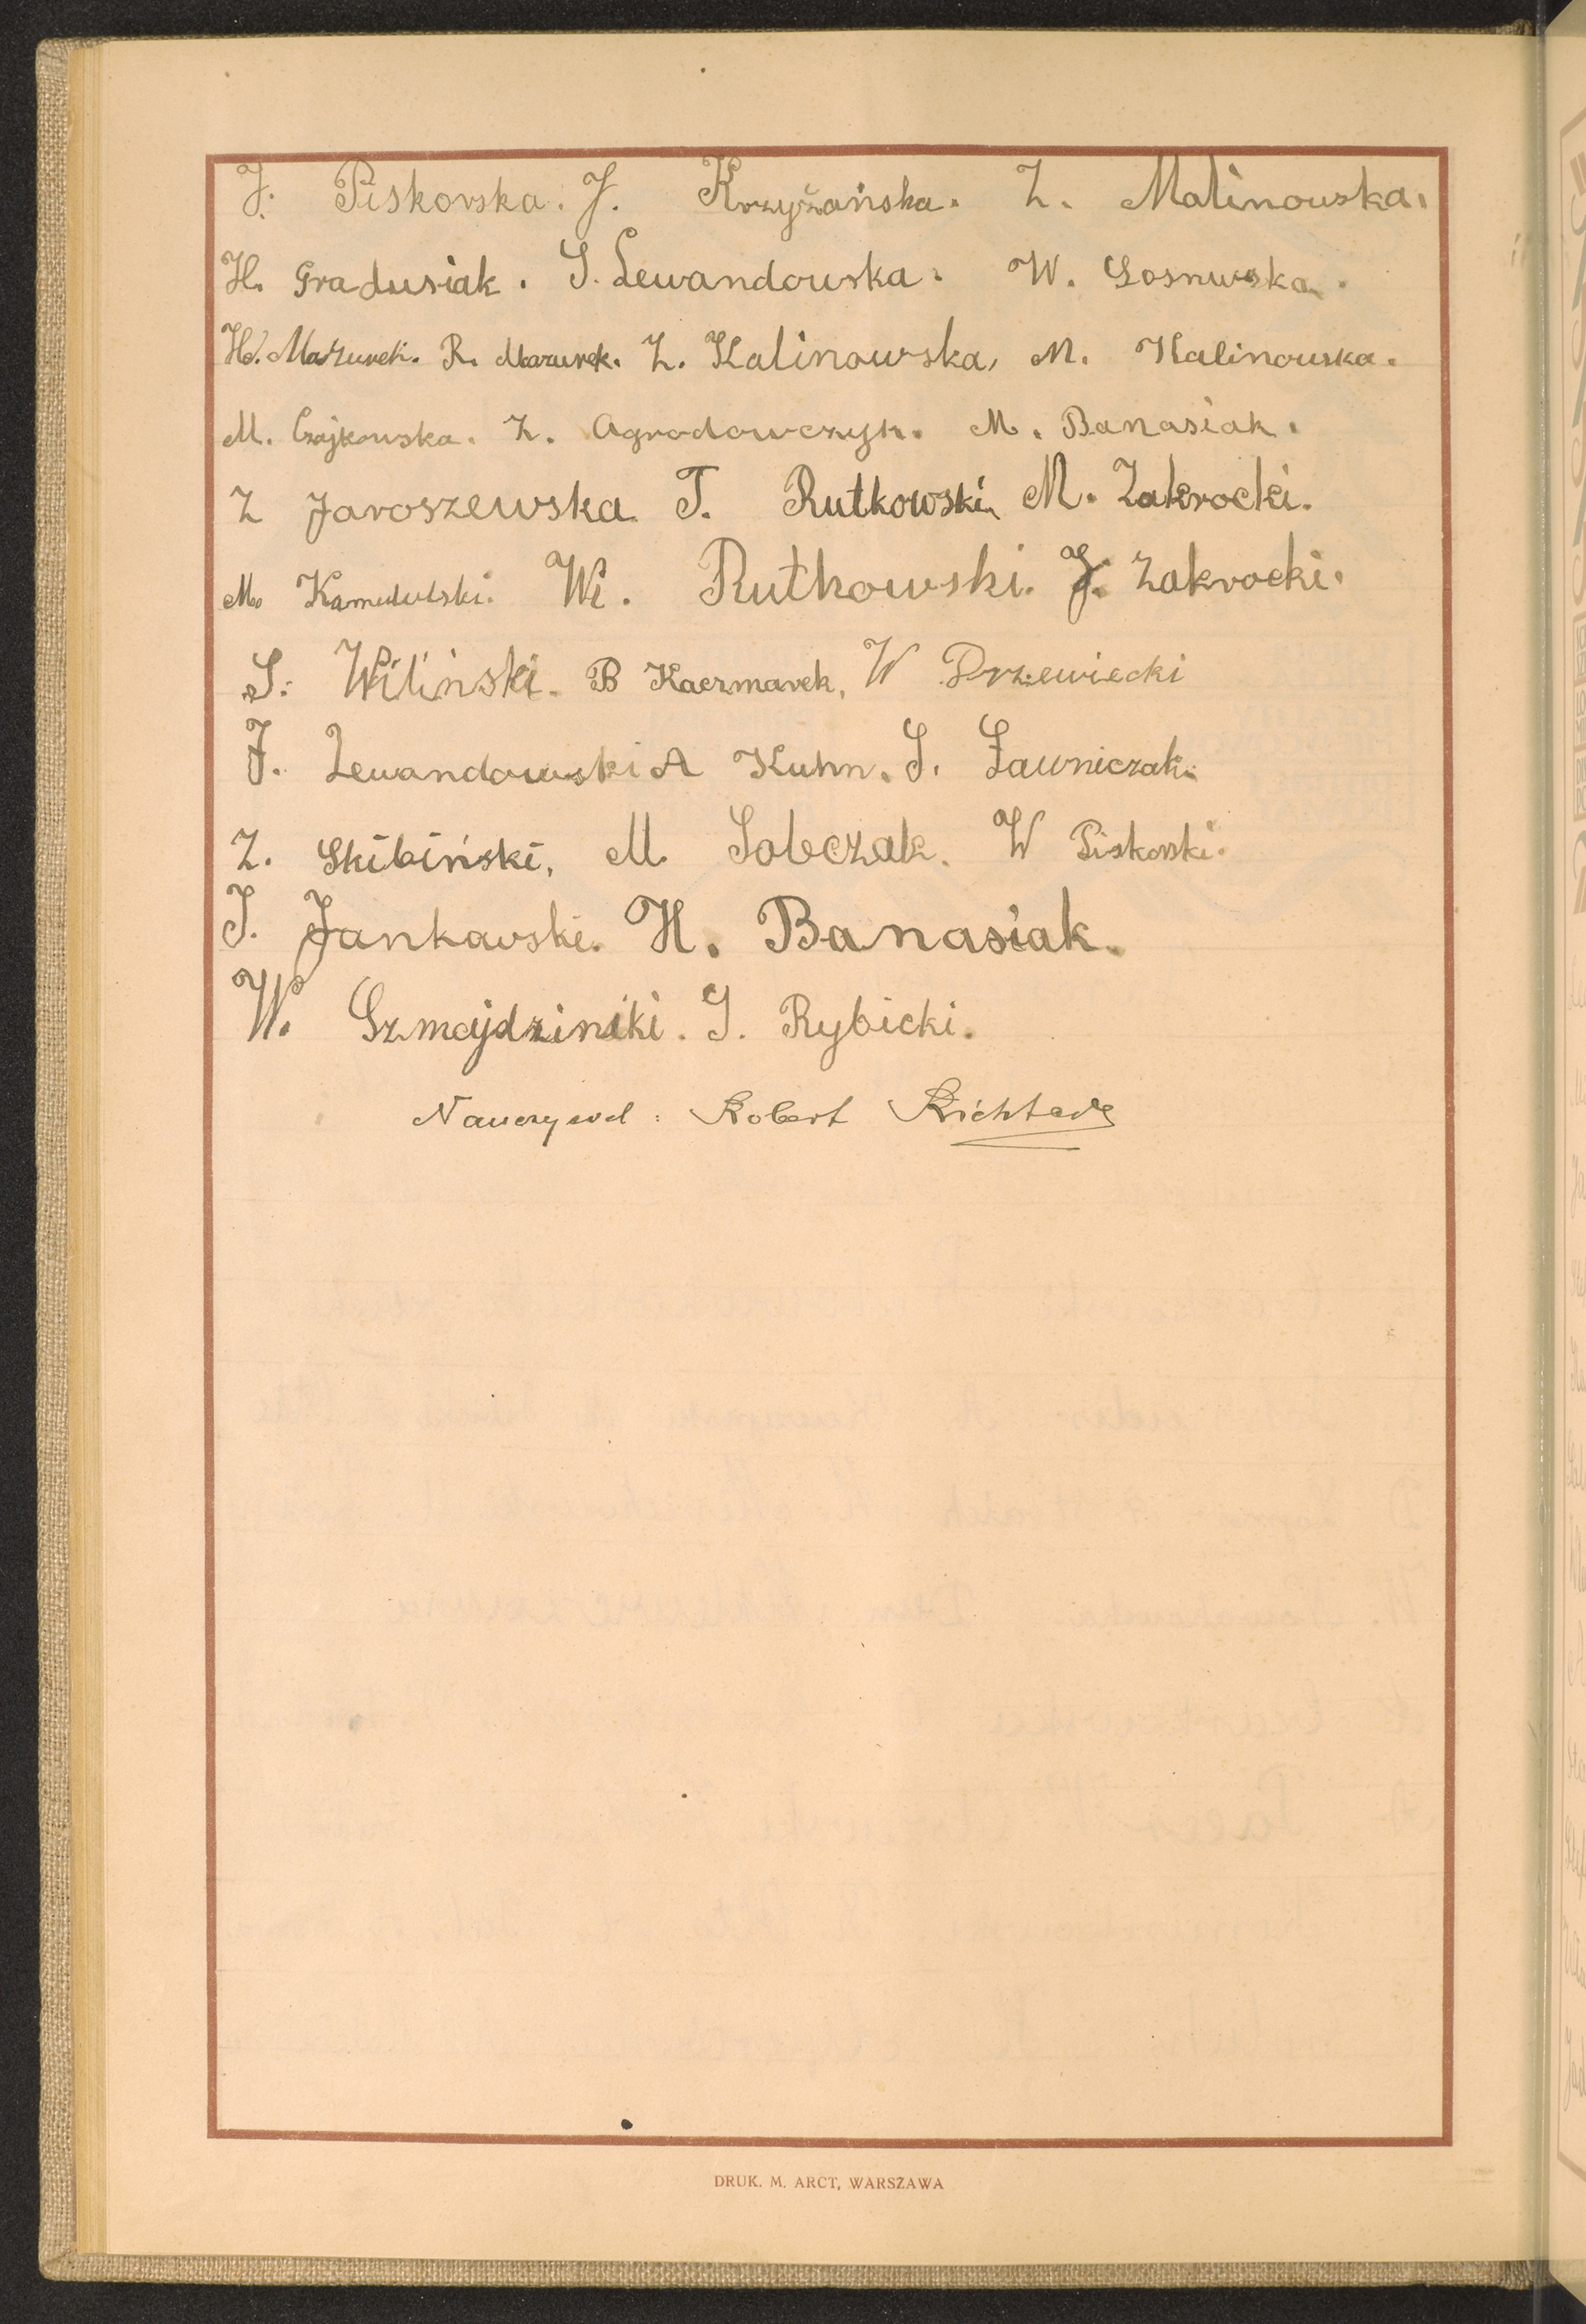 J. Piskorska. J. Krzyżańska. Z. Malinowska.
H. Gradusiak. S. Lewandowska. W. Sosnwska.
H. Mazurek. R. Mazurek. Z. Kalinowska, M. Kalinowska.
M. Czajkowska. Z. Agrodowczyk. M. Banasiak.
Z Jaroszewska T. Rutkowski, M. Zakrocki.
M. Kamedulski. Wł. Rutkowski. J. Zakrocki.
S. Wiliński. B Kaczmarek, W Drzewiecki
J. Lewandowski A Kuhn. S. Ławniczak.
Z. Skibiński, M. Sobczak. W Piskorski.
J. Jankowski. H. Banasiak.
W. Szmajdziński. J. Rybicki.
Nauczyciel: Robert Richter
DRUK. M. ARCT, WARSZAWA